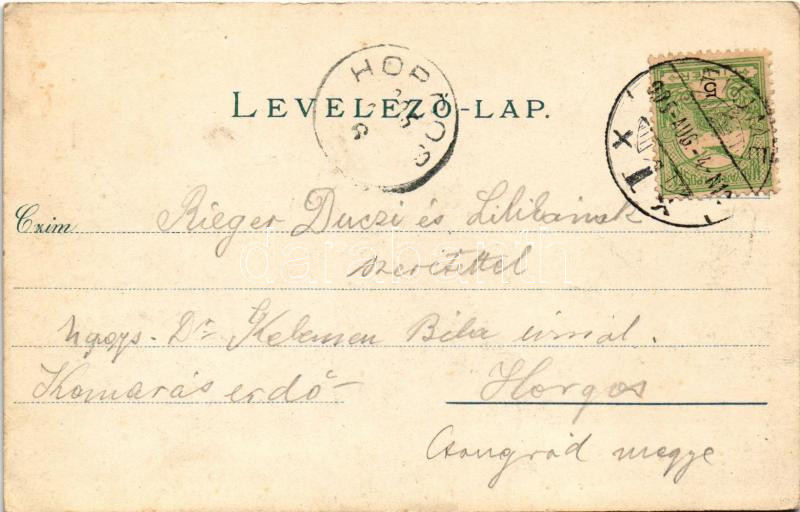 LEVELEZŐ-LAP.
HORGOS
905 AUG.
Czim Rieger Duczi és Lilibának
szeretettel
Nagys. Dr Kelemen Béla úrnál.
Komarás erdő Horgos
Csongrád megye
darabanth